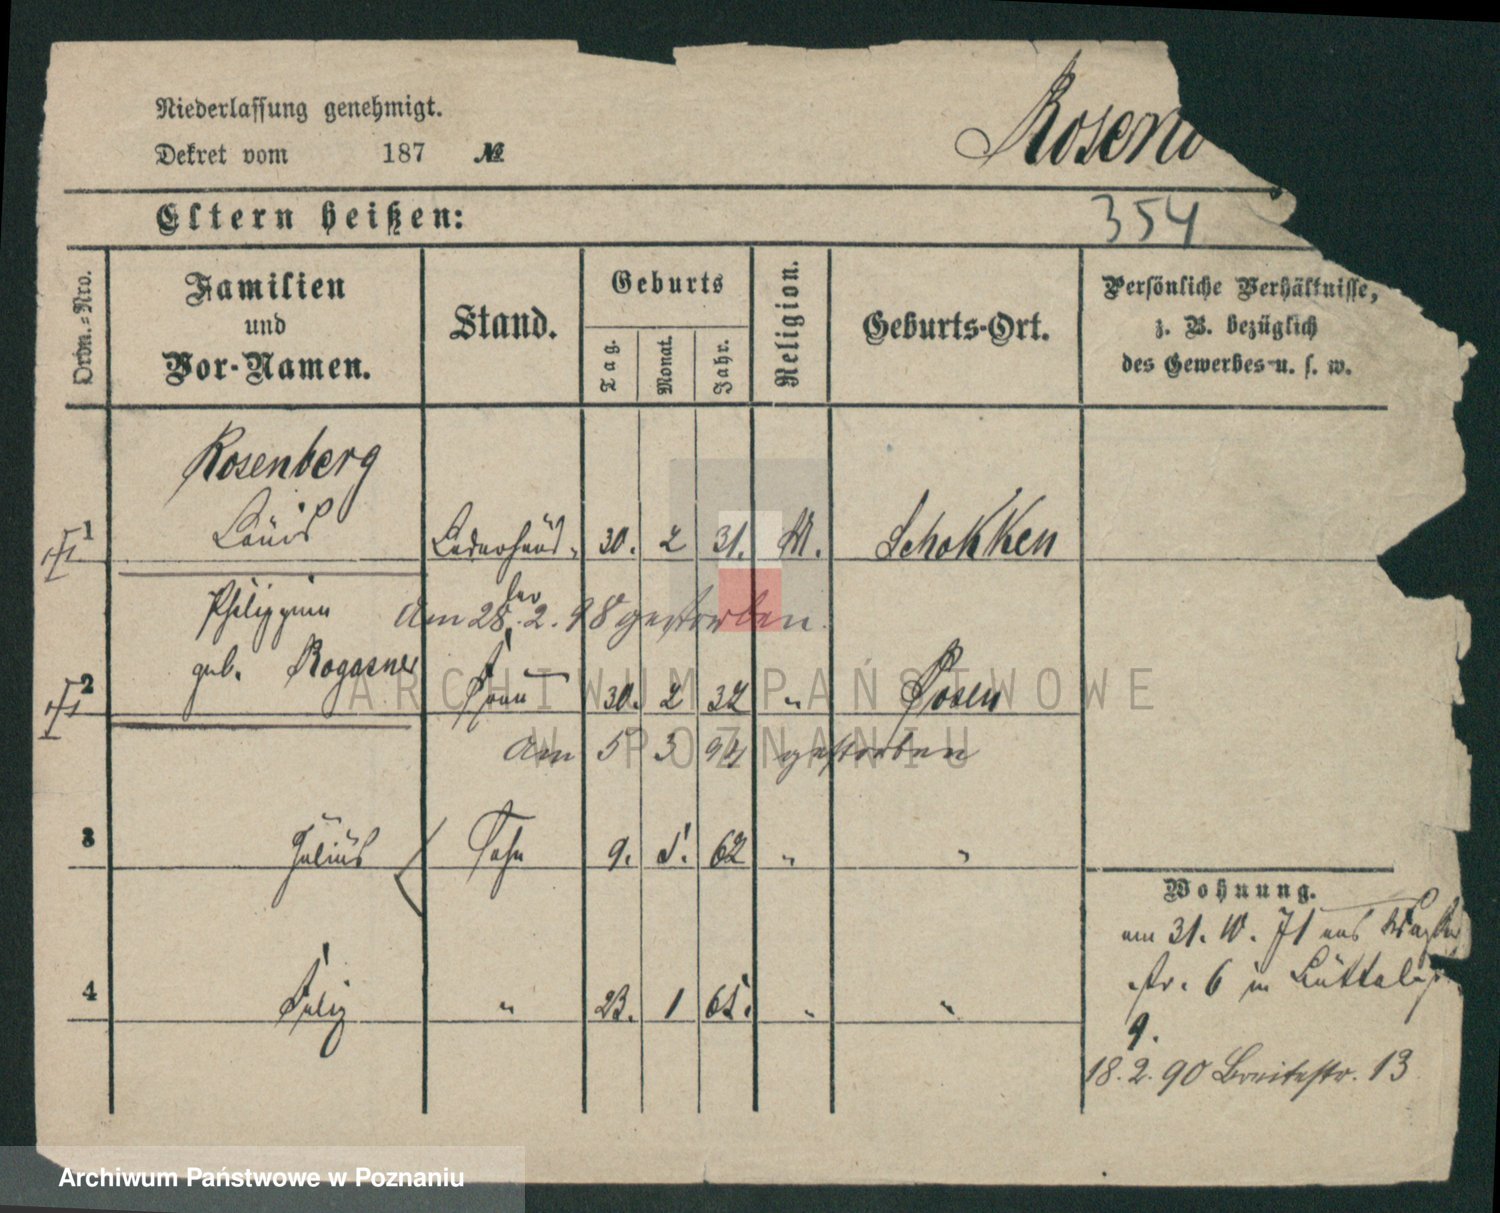 Niederlassung genehmigt.
Dekret vom 187 №
Rosen
Eltern heißen:
354
Ordn.-Nro.
Familien
und
Vor-Namen.
Stand.
Geburts
Tag.
Monat.
Jahr.
Religion.
Geburts-Ort.
Persönliche Verhältnisse,
z. B. bezüglich
des Gewerbes u. s. w.
Rosenberg
1 Louis Lederhänd- 30. 2 31. M. Schokken
ler
Philippine am 28. 2. 98 gestorben.
geb. Rogasner
2 Frau 30. 2 32 " Posen
am 5 3 94 gestorben
3 Julius Sohn 9. 5. 62 " "
4 Felix " 23. 1 65. " "
Wohnung.
am 31. 10. 71 aus
str. 6 in
9.
18. 2. 90 Breitestr. 13
ARCHIWUM PAŃSTWOWE
W POZNANIU
Archiwum Państwowe w Poznaniu